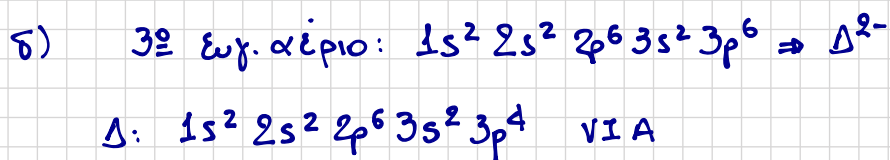 δ) 3º ευγ. αέριο: 1s² 2s² 2p⁶ 3s² 3p⁶ ⇒ Δ²⁻
Δ: 1s² 2s² 2p⁶ 3s² 3p⁴ VIA